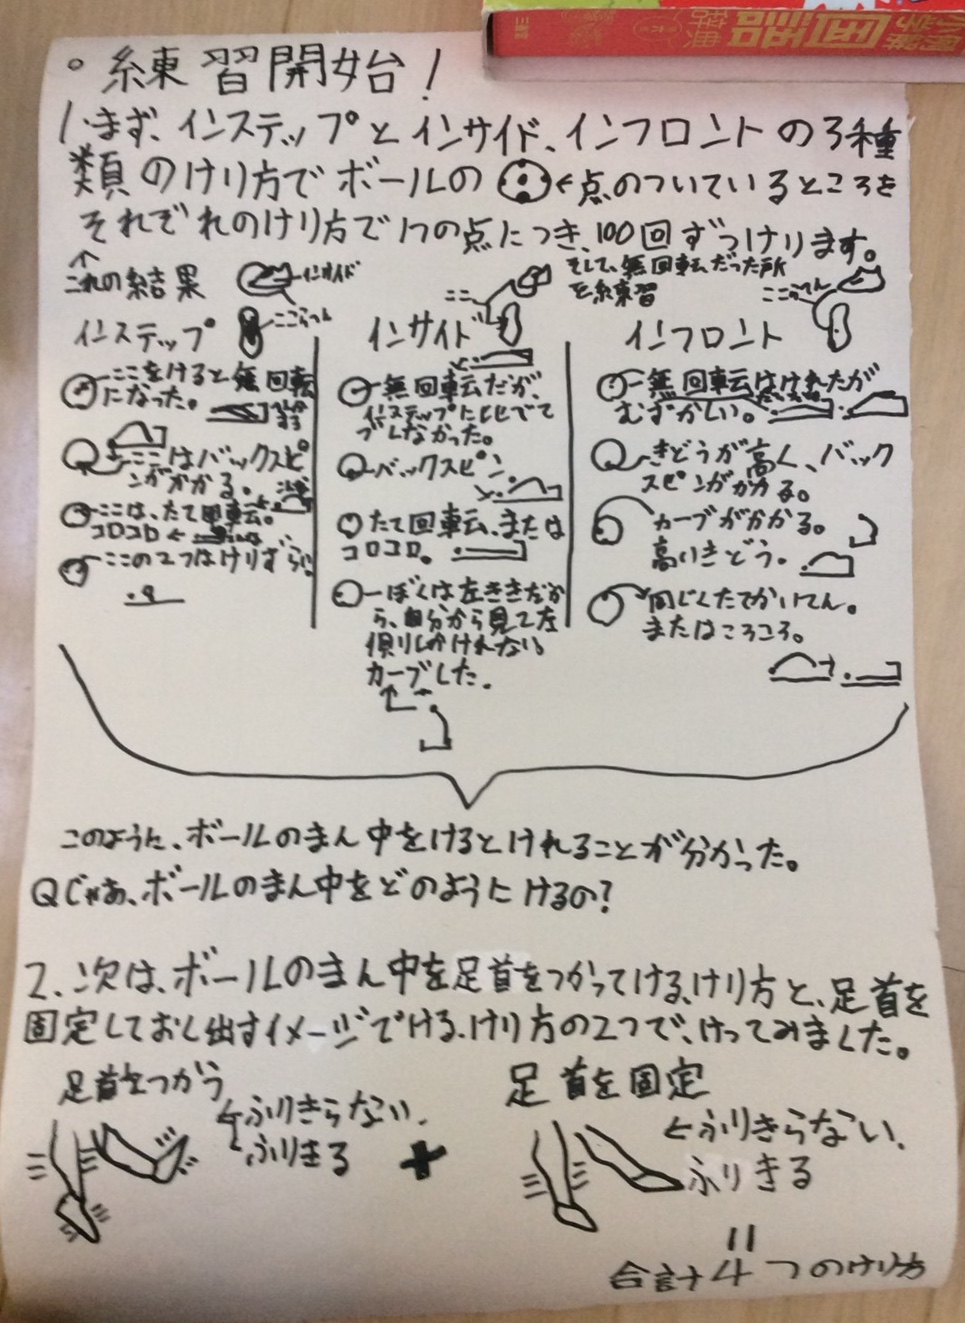 。練習開始！
1.まず、インステップとインサイド、インフロントの3種
類のけり方でボールの ←点のついているところを
それぞれのけり方で1つの点につき、100回ずつけります。
そして、無回転だった所
を練習
これの結果
インサイド
ここらへん
ここ
ここらへん
インステップ
ここをけると無回転
になった。
ここはバックスピ
ンがかかる。
ここは、たて回転。
コロコロ←
ここの2つはけりずらい
インサイド
無回転だが、
インステップに比べて
ブレなかった。
バックスピン
たて回転、または
コロコロ。
ぼくは左ききだか
ら、自分から見て左
側りしかけれない
カーブした.
インフロント
無回転はけれたが
むずかしい。
きどうが高く、バック
スピンがかかる。
カーブがかかる。
高いきどう。
同じくたてかいてん。
またはころころ。
このように、ボールのまん中をけるとけれることが分かった。
Qじゃあ、ボールのまん中をどのようにけるの?
2、次は、ボールのまん中を足首をつかってける、けり方と、足首を
固定しておし出すイメージでける、けり方の2つで、けってみました。
足首をつかう
←ふりきらない.
ふりきる
+
足首を固定
←ふりきらない、
ふりきる
=
合計4つのけり方